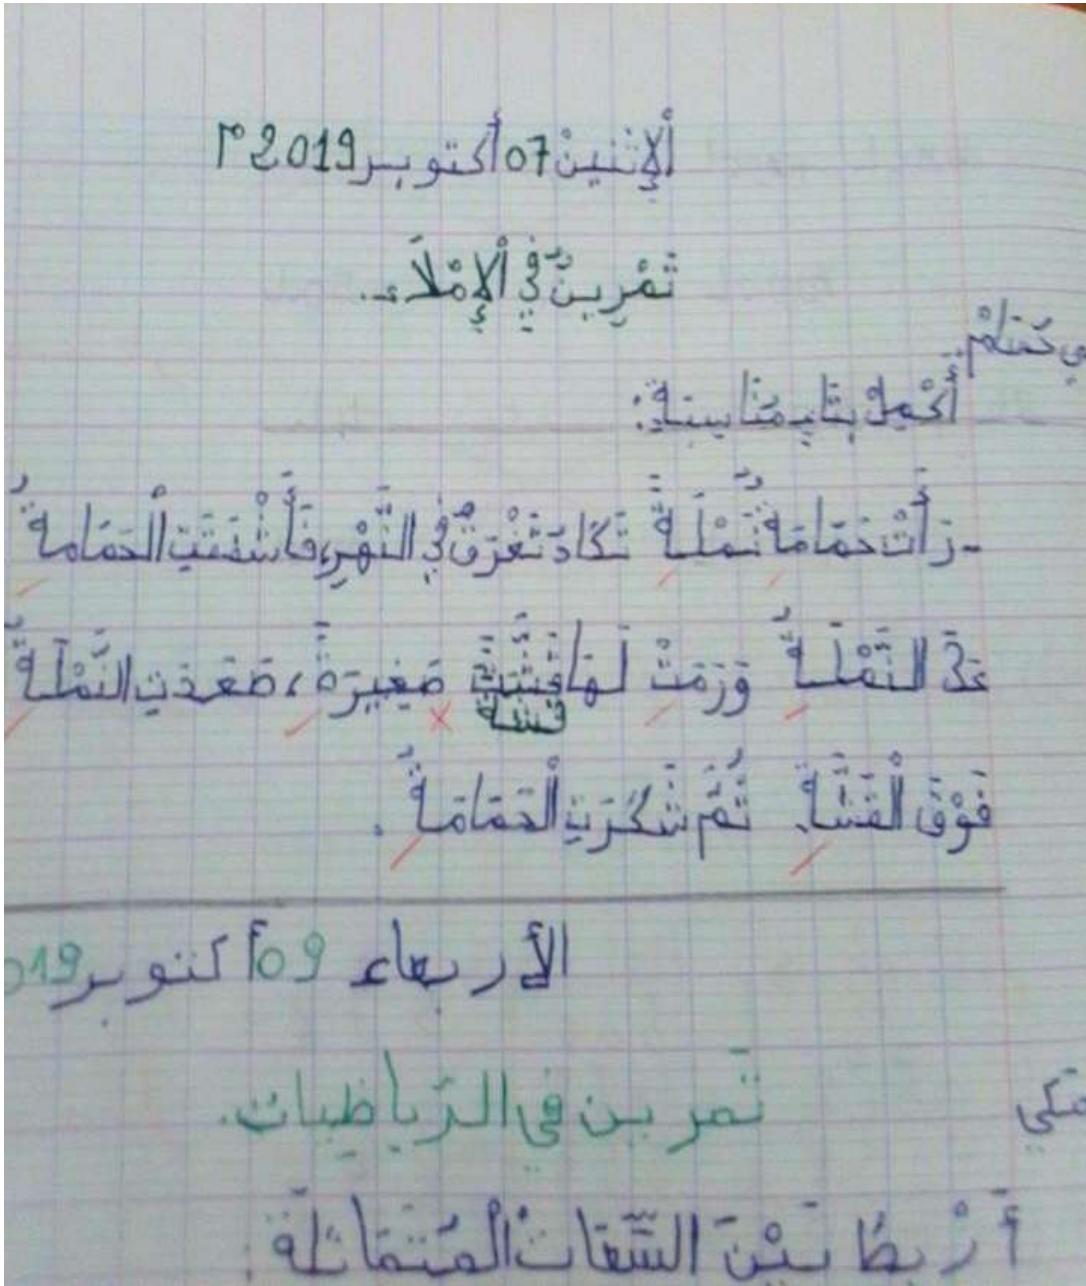 ألإثنين 07 أكتوبر 2019 م
تَمْرِينٌ فِي ألْإِمْلَاء.
أَكْمِلُ بِتَاءٍ مُنَاسِبَةٍ:
- رَأَتْ حَمَامَةٌ نَمْلَةً تَكَادُ تَغْرَقُ فِي النَّهْرِ، فَأَشْفَقَتِ الْحَمَامَةُ
عَلَى النَّمْلَةِ وَرَمَتْ لَهَا قَشَّةً صَغِيرَةً، صَعَدَتِ النَّمْلَةُ
قشة
فَوْقَ الْقَشَّةِ ثُمَّ شَكَرَتِ الْحَمَامَةَ.
الأربعاء 09 أكتوبر 019
تَمرين في الرّياظيات.
أَرْبِطُ بَيْنَ البِّطَاقَاتُ الْمُتَمَاثِلَةِ: